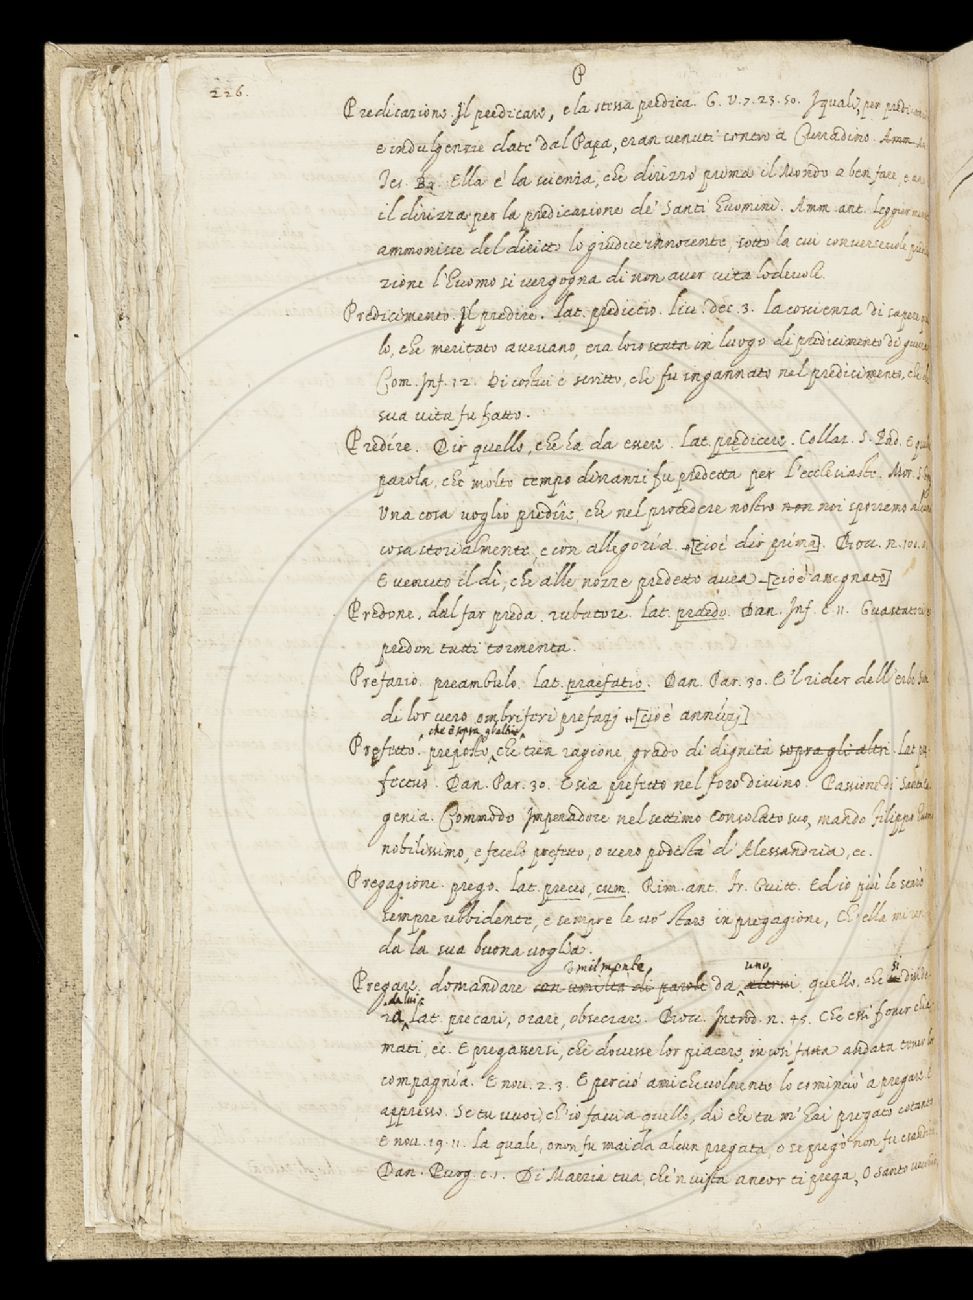 226.
P
Predicazione. Il predicare, e la stessa predica. G. V. 7. 23. 50. I quali, per
e indulgenzie date dal Papa, eran venuti contro a Curradino. Amm.
Ies. B. Ella è la scienza, che dirizzò prima il Mondo a ben fare, e
il dirizza per la predicazione de' Santi Huomini. Amm. ant.
ammonisce del diritto lo giudice innocente, sotto la cui conversevole
zione l'Huomo si vergogna di non aver vita lodevole.
Predicimento. Il predire. lat. predictio. Liv. dec. 3. la coscienza di sapere
lo, che meritato avevano, era loro stata in luogo di predicimento di
Com. Inf. 12. Di costui è scritto, che fu ingannato nel predicimento, che
sua vita fu fatto.
Predire. Dir quello, che ha da essere. lat. predicere. Collaz. S. Pad. E
parola, che molto tempo dinanzi fu predetta per l'ecclesiaste. Mor. S.
Una cosa voglio predire, che nel procedere nostro non noi sporremo
cosa storialmente, e con allegoria. +[cioè dir prima]. Bocc. n. 101.
E venuto il dì, che alle nozze predetto avea -[cioè assegnato]
Predone. dal far preda. rubatore. lat. praedo. Dan. Inf. c. 11. Guastatori
predon tutti tormenta.
Prefazio. preambulo. lat. praefatio. Dan. Par. 30. E 'l rider dell'erbe
di lor vero ombriferi prefazj +[cioè annúzj]
che è sopra gli altri
Prefetto. preposto, che tien ragione grado di dignità sopra gli altri. lat.
fectus. Dan. Par. 30. E sia prefetto nel foro divino. Passione di Santa
genia. Commodo Imperadore nel settimo Consolato suo, mandò Filippo
nobilissimo, e fecelo prefetto, o vero podestà d'Alessandria, ec.
Pregagione. prego. lat. preces, cum. Rim. ant. Fr. Guitt. Ed io più le sarò
sempre ubbidente, e sempre le vo' stare in pregagione, Ch'ella mi
da la sua buona voglia.
umilmente uno si
Pregare. domandare con umiltà di parole da alcuni quello, che
da lui
ra lat. precari, orare, obsecrare. Bocc. Introd. n. 45. Che essi fosser
mati, ec. E pregassersi, che dovesse lor piacere, in così fatta andata tener
compagnía. E nov. 2. 3. E perciò amichevolmente lo cominciò a pregare.
appresso. Se tu vuoi, ch'io faccia quello, di che tu m'hai pregato cotanto
E nov. 19. 11. La quale, o non fu mai da alcun pregata, o se pregò non fu
Dan. Purg. c. 1. Di Marzia tua, che 'n vista ancor ti prega, O santo